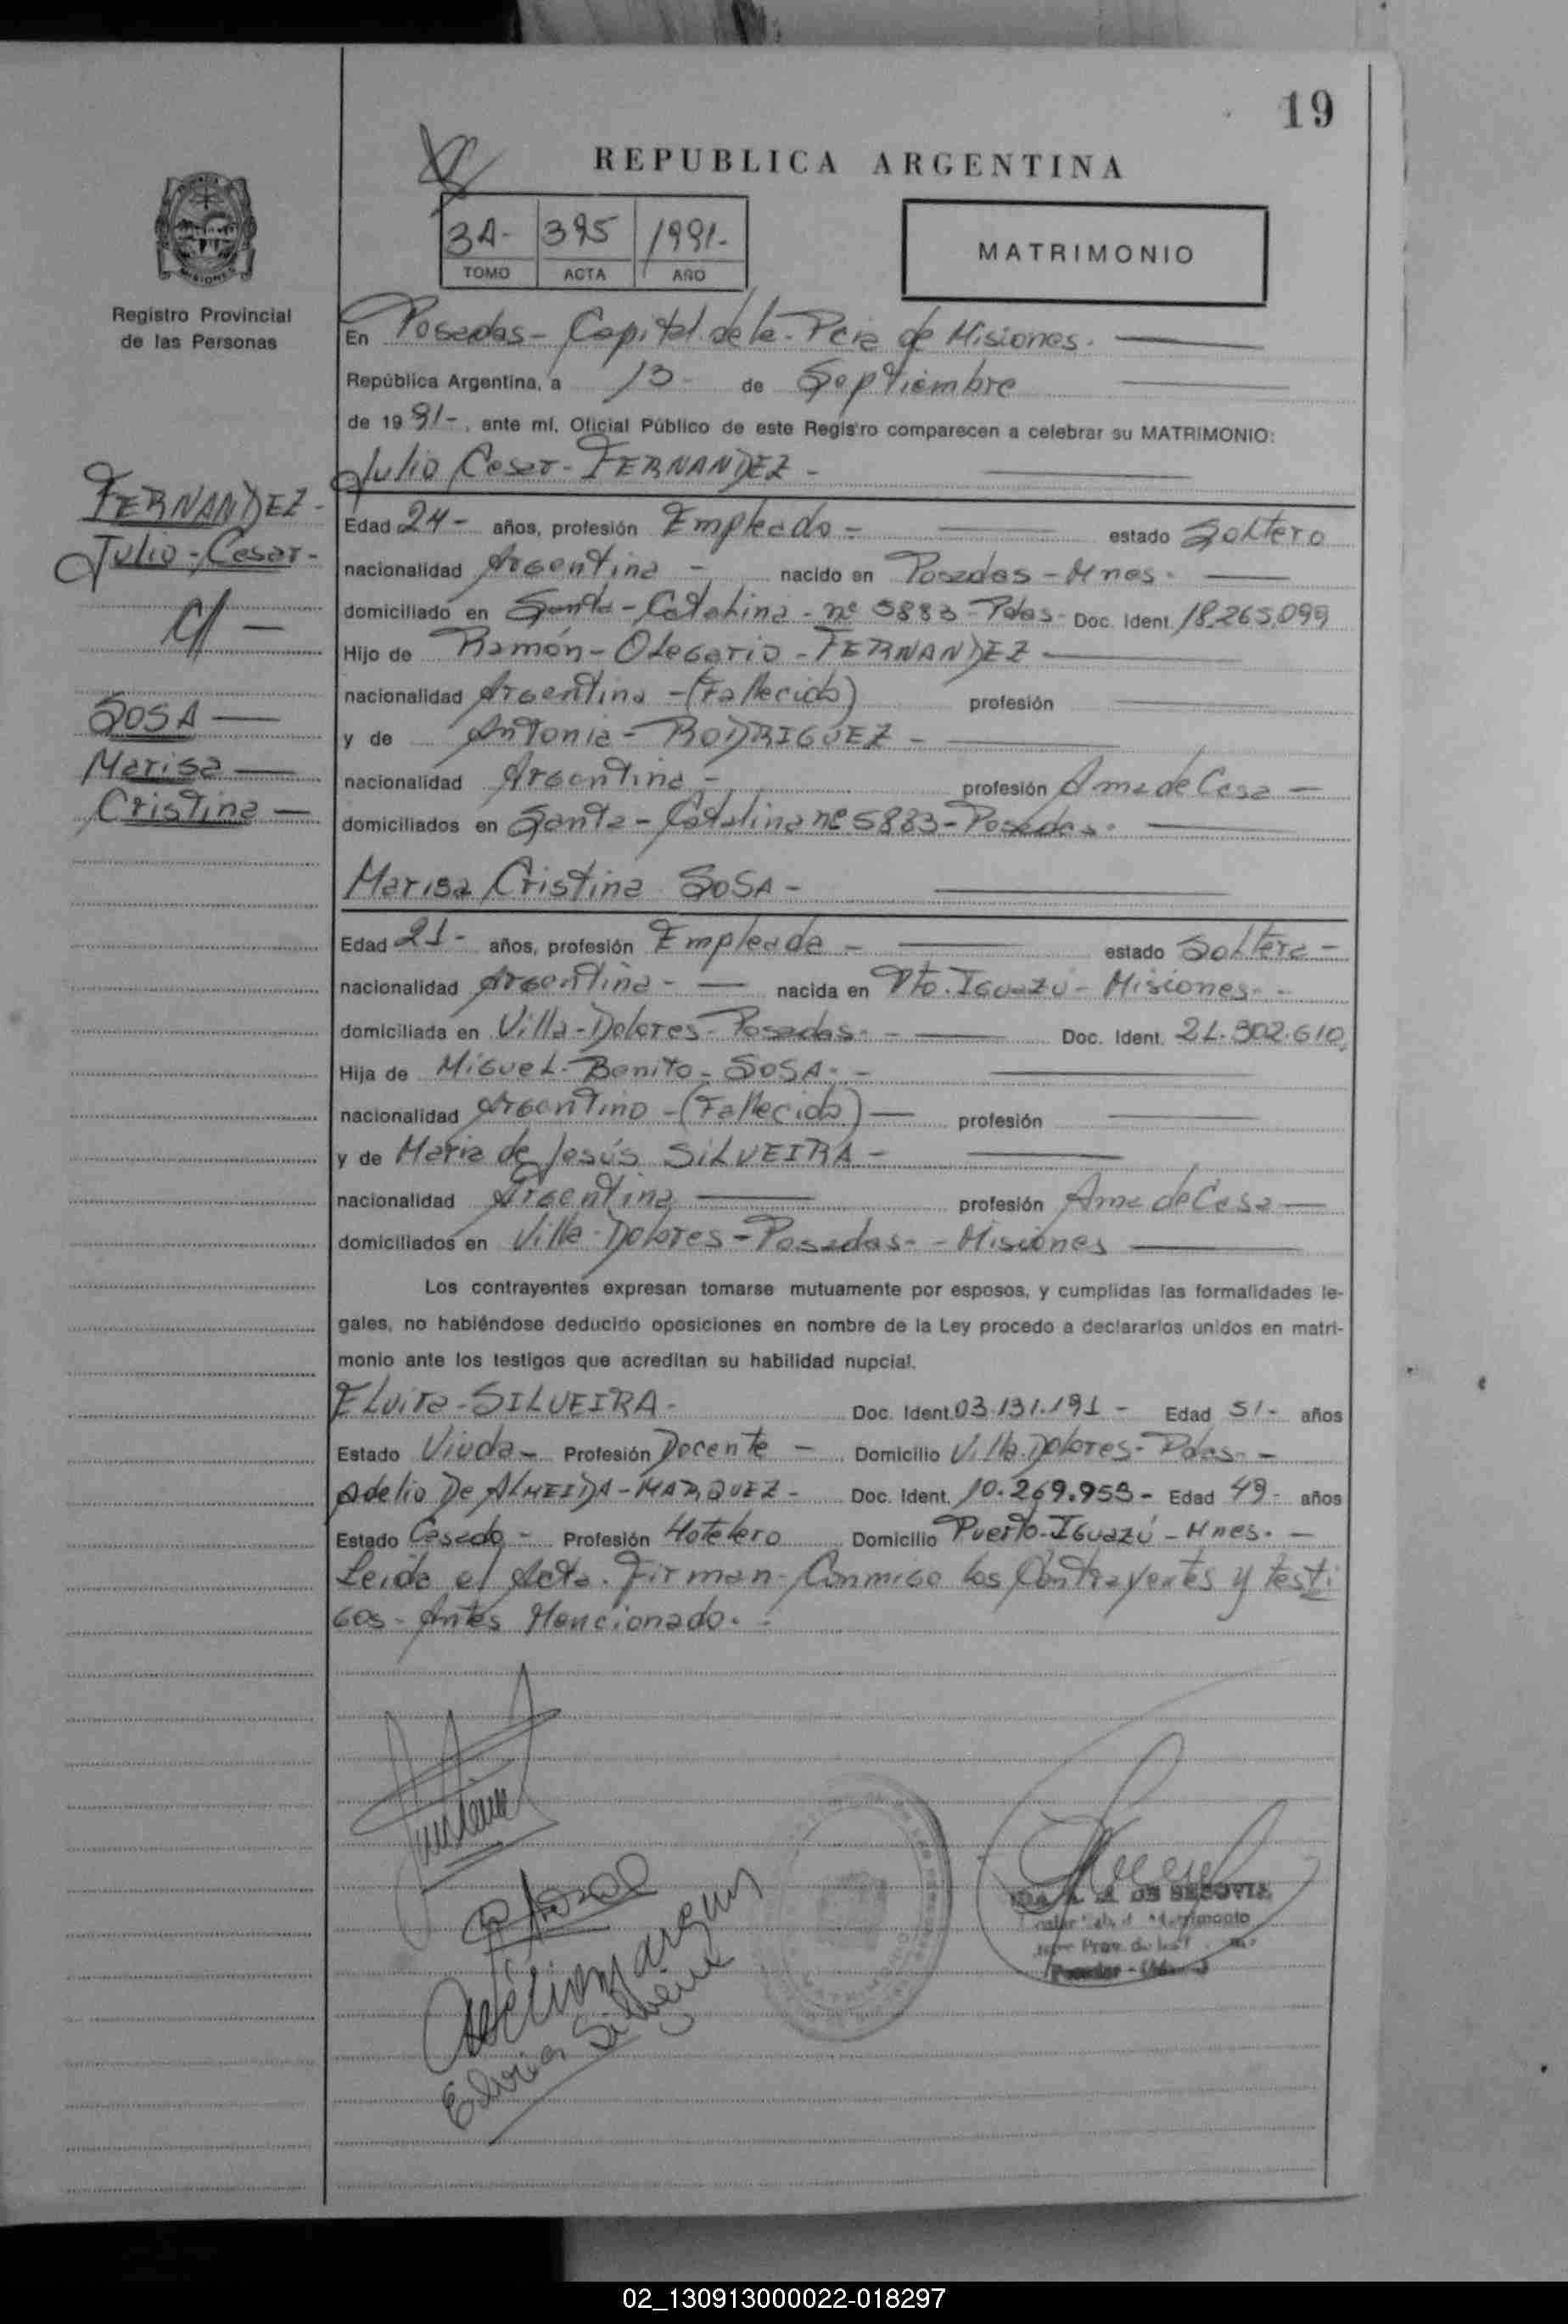 19
REPUBLICA ARGENTINA
3A- 395 1991-
TOMO ACTA AÑO
MATRIMONIO
Registro Provincial
de las Personas
En Posadas - Capital de la - Pcia de Misiones.
República Argentina, a 13- de Septiembre
de 19 91-, ante mí, Oficial Público de este Registro comparecen a celebrar su MATRIMONIO:
Julio Cesar - FERNANDEZ -
FERNANDEZ -
Julio - Cesar -
c/ -
SOSA -
Marisa -
Cristina -
Edad 24- años, profesión Empleado - estado Soltero
nacionalidad Argentina - nacido en Posadas - Mnes.
domiciliado en Santa - Catalina - nº 5883 - Pdas - Doc. Ident. 18.265.099
Hijo de Ramón - Olegario - FERNANDEZ
nacionalidad Argentino - (Fallecido) profesión
y de Antonia - RODRIGUEZ -
nacionalidad Argentina - profesión Ama de Casa -
domiciliados en Santa - Catalina nº 5883 - Posadas.
Marisa Cristina SOSA -
Edad 21- años, profesión Empleada - estado Soltera -
nacionalidad Argentina - nacida en Pto. Iguazú - Misiones -
domiciliada en Villa - Dolores - Posadas - Doc. Ident. 21.302.610
Hija de Miguel - Benito - SOSA -
nacionalidad Argentino - (Fallecido) - profesión
y de Maria de Jesús SILVEIRA -
nacionalidad Argentina profesión Ama de Casa -
domiciliados en Villa - Dolores - Posadas - Misiones
Los contrayentes expresan tomarse mutuamente por esposos, y cumplidas las formalidades le-
gales, no habiéndose deducido oposiciones en nombre de la Ley procedo a declararlos unidos en matri-
monio ante los testigos que acreditan su habilidad nupcial.
Elvira - SILVEIRA - Doc. Ident. 03.131.191 - Edad 51- años
Estado Viuda - Profesión Docente - Domicilio Villa Dolores - Pdas -
Adelio De ALMEIDA - MARQUEZ - Doc. Ident. 10.269.953 - Edad 49- años
Estado Casado - Profesión Hotelero Domicilio Puerto - Iguazú - Mnes. -
Leida el Acta. Firman - Conmigo los Contrayentes y testi
gos - Antes Mencionado. -
Elvira Silveira
DE SEGOVIA
02_130913000022-018297